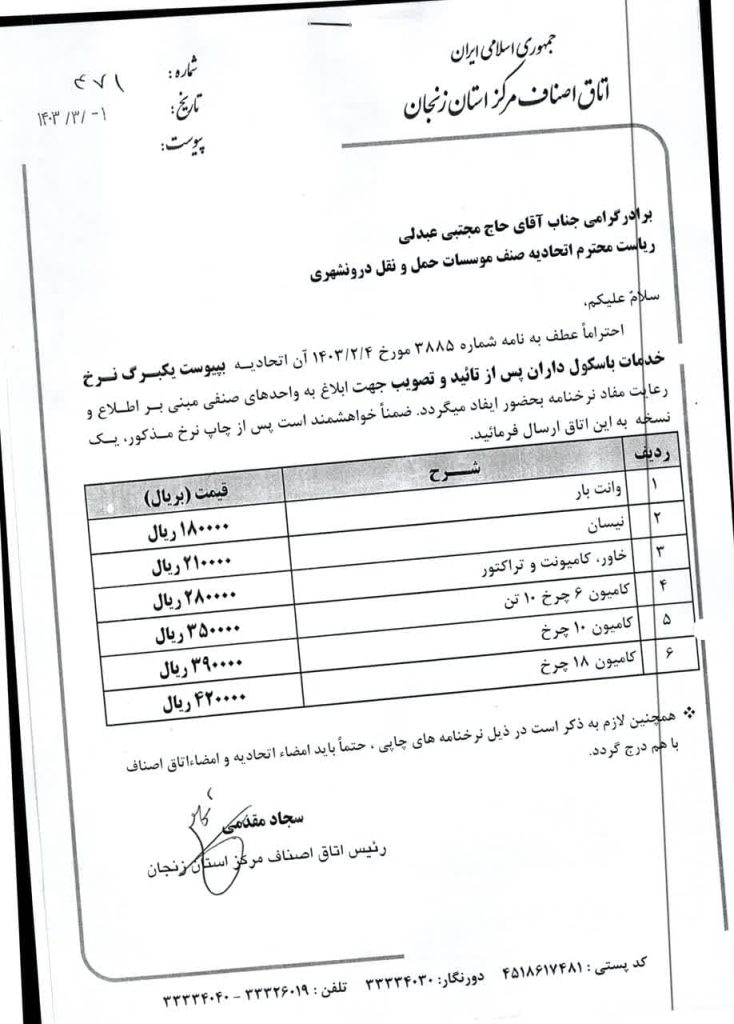 جمهوری اسلامی ایران
اتاق اصناف مرکز استان زنجان
شماره: ۴۷۱
تاریخ: ۱۴۰۳/۳/۰۱
پیوست:
برادرگرامی جناب آقای حاج مجتبی عبدلی
ریاست محترم اتحادیه صنف موسسات حمل و نقل درونشهری
سلامٌ علیکم،
احتراماً عطف به نامه شماره ۳۸۸۵ مورخ ۱۴۰۳/۲/۴ آن اتحادیه بپیوست یکبرگ نرخ
خدمات باسکول داران پس از تائید و تصویب جهت ابلاغ به واحدهای صنفی مبنی بر اطلاع و
رعایت مفاد نرخنامه بحضور ایفاد میگردد. ضمناً خواهشمند است پس از چاپ نرخ مذکور، یک
نسخه به این اتاق ارسال فرمائید.
ردیف شرح قیمت (بریال)
۱ وانت بار ۱۸۰۰۰۰ ریال
۲ نیسان ۲۱۰۰۰۰ ریال
۳ خاور، کامیونت و تراکتور ۲۸۰۰۰۰ ریال
۴ کامیون ۶ چرخ ۱۰ تن ۳۵۰۰۰۰ ریال
۵ کامیون ۱۰ چرخ ۳۹۰۰۰۰ ریال
۶ کامیون ۱۸ چرخ ۴۲۰۰۰۰ ریال
❖ همچنین لازم به ذکر است در ذیل نرخنامه های چاپی ، حتماً باید امضاء اتحادیه و امضاءاتاق اصناف
با هم درج گردد.
سجاد مقدمی
رئیس اتاق اصناف مرکز استان زنجان
کد پستی : ۴۵۱۸۶۱۷۴۸۱ دورنگار: ۳۳۳۳۴۰۳۰ تلفن : ۳۳۳۲۶۰۱۹ - ۳۳۳۳۴۰۴۰